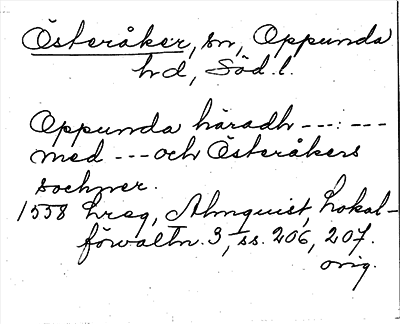 Österåker, sn, Oppunda
hd, Söd. l.
Oppunda häradh ---:---
med --- och Österåkers
sochner.
1558 hreg, Almquist, Lokal-
förvaltn. 3, ss. 206, 207.
orig.